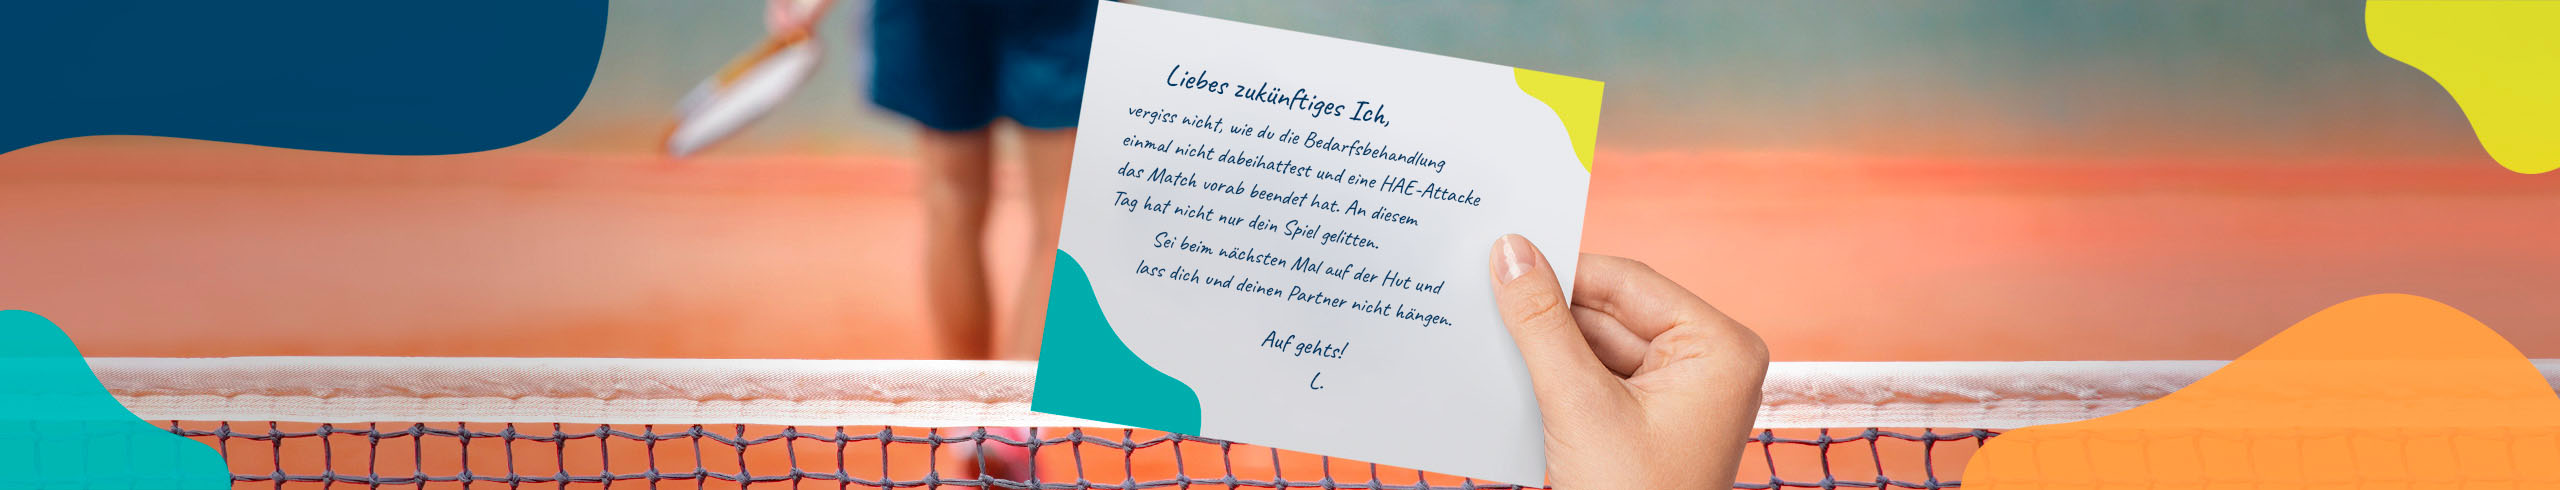 Liebes zukünftiges Ich,
vergiss nicht, wie du die Bedarfsbehandlung
einmal nicht dabeihattest und eine HAE-Attacke
das Match vorab beendet hat. An diesem
Tag hat nicht nur dein Spiel gelitten.
Sei beim nächsten Mal auf der Hut und
lass dich und deinen Partner nicht hängen.
Auf gehts!
L.